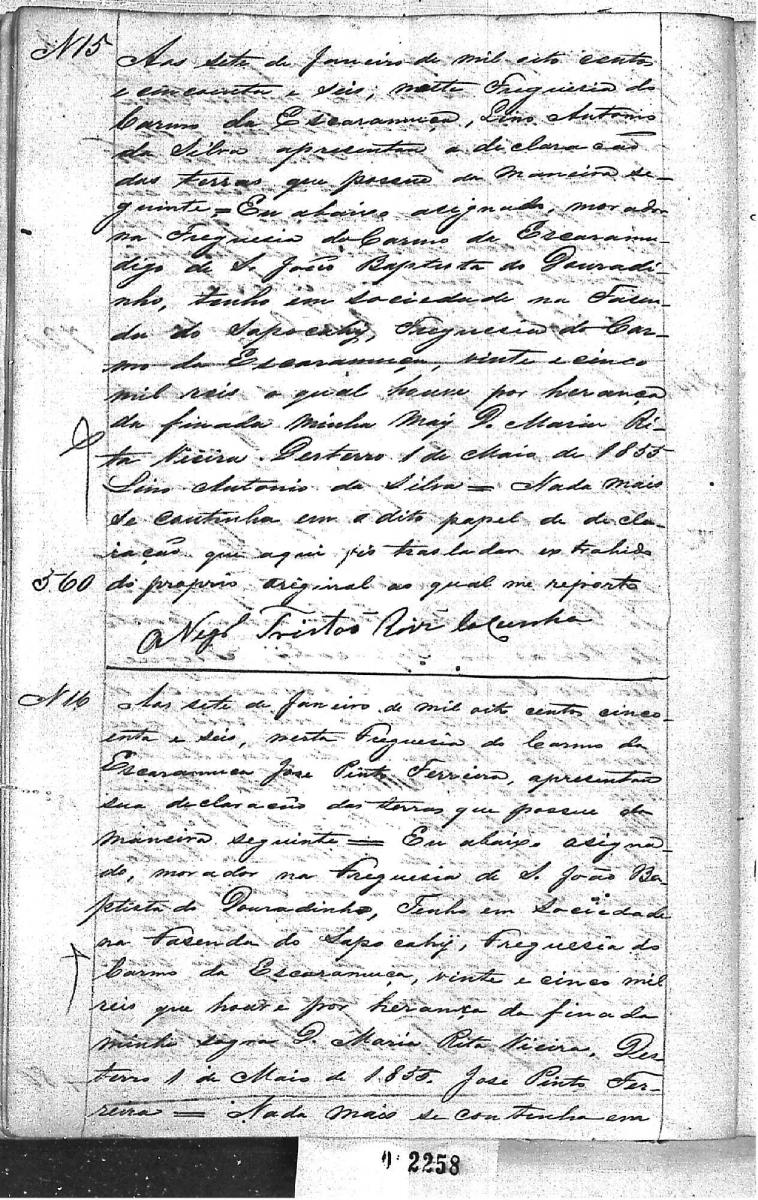 N15
Aos sete de Janeiro de mil oito centos
e cincoenta e seis, nesta Freguesia do
Carmo da Escaramuça, Lino Antonio
da Silva apresentou a declaração
das terras que possue da maneira se-
guinte = Eu abaixo asignado, morador
na Freguesia do Carmo de Escaramu-
digo de S. João Baptista do Douradi-
nho, tenho em sociedade na Fasen-
da do Sapocahy, Freguesia do Car-
mo da Escaramuça, vinte e cinco
mil reis a qual houve por herança
da finada minha Maý D. Maria Ri-
ta Vieira. Desterro 1 de Maio de 1855
Lino Antonio da Silva = Nada mais
se continha em o dito papel de decla-
ração que aqui fis trasladar extrahido
560 do proprio original ao qual me reporto
O Vigº Tristão
N16
Aos sete de Janeiro de mil oito centos cinco-
enta e seis, nesta Freguesia do Carmo da
Escaramuca Jose Pinto Ferreira, apresentou
sua declaração das terras que possue da
maneira seguinte = Eu abaixo asigna-
do, morador na Freguesia de S. João Ba-
ptista do Douradinho, Tenho em Sociedade
na Fasenda do Sapocahÿ, Freguesia do
Carmo da Escaramuça, vinte e cinco mil
reis que houve por herança da finada
minha sogra D. Maria Rita Vieira, Des-
terro 1 de Maio de 1855. Jose Pinto Fer-
reira = Nada mais se continha em
2258